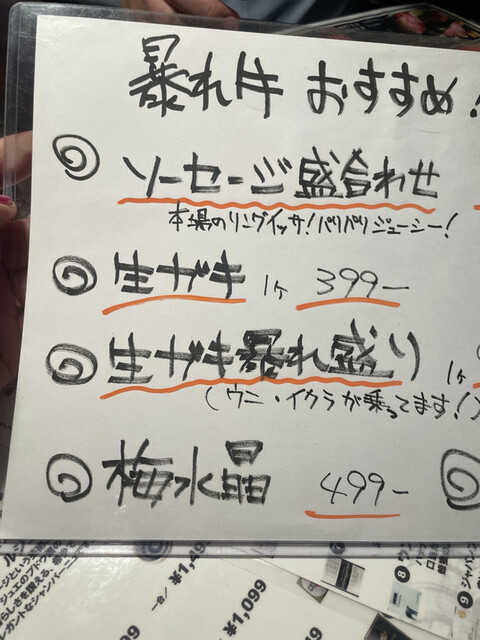 暴れ牛 おすすめ!
ソーセージ盛合わせ
本場のリングイッサ!パリパリジューシー!
生ガキ 1ヶ 399-
生ガキ暴れ盛り 1ヶ
(ウニ・イクラが乗ってます!)
梅水晶 499-
¥1,49
一台/¥1,099
¥1,099
8
9 ジャパン